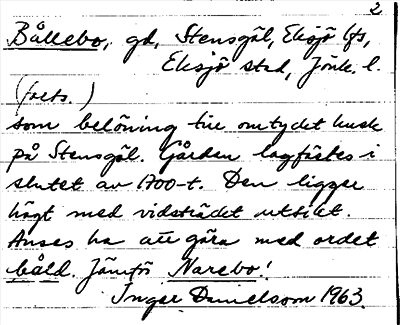 2
Bållebo, gd, Stensgöl, Eksjö lfs,
Eksjö stad, Jönk. l.
(forts.)
som belöning till omtydet kusk
på Stensgöl. Gården lagfästes i
slutet av 1700-t. Den ligger
högt med vidsträckt utsikt.
Anses ha att göra med ordet
båld. Jämför Narebo!
Inger Danielsson 1963.